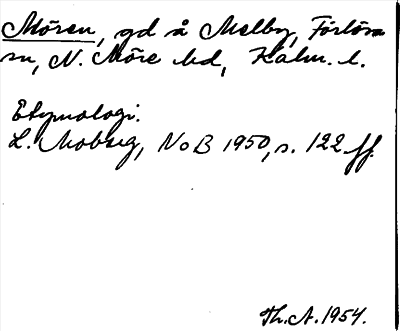 Mören, gd å Melby, Förlösa
sn, N. Möre hd, Kalm. l.
Etymologi.
L. Moberg, NoB 1950, s. 122 ff.
Th. A. 1954.